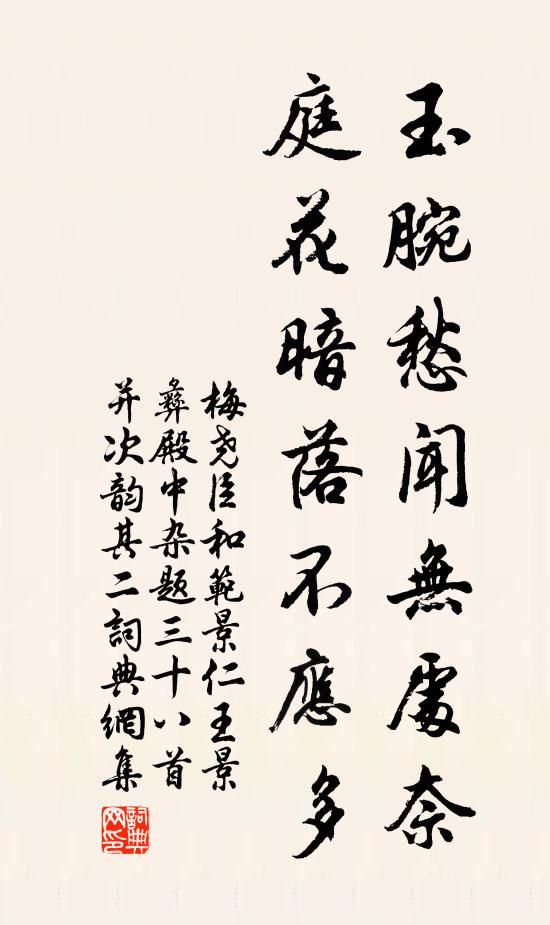 玉腕愁闻無處奈
庭花暗落不應多
梅尧臣和範景仁王景
彝殿中杂题三十八首
并次韵其二詞典網集
詞典网印